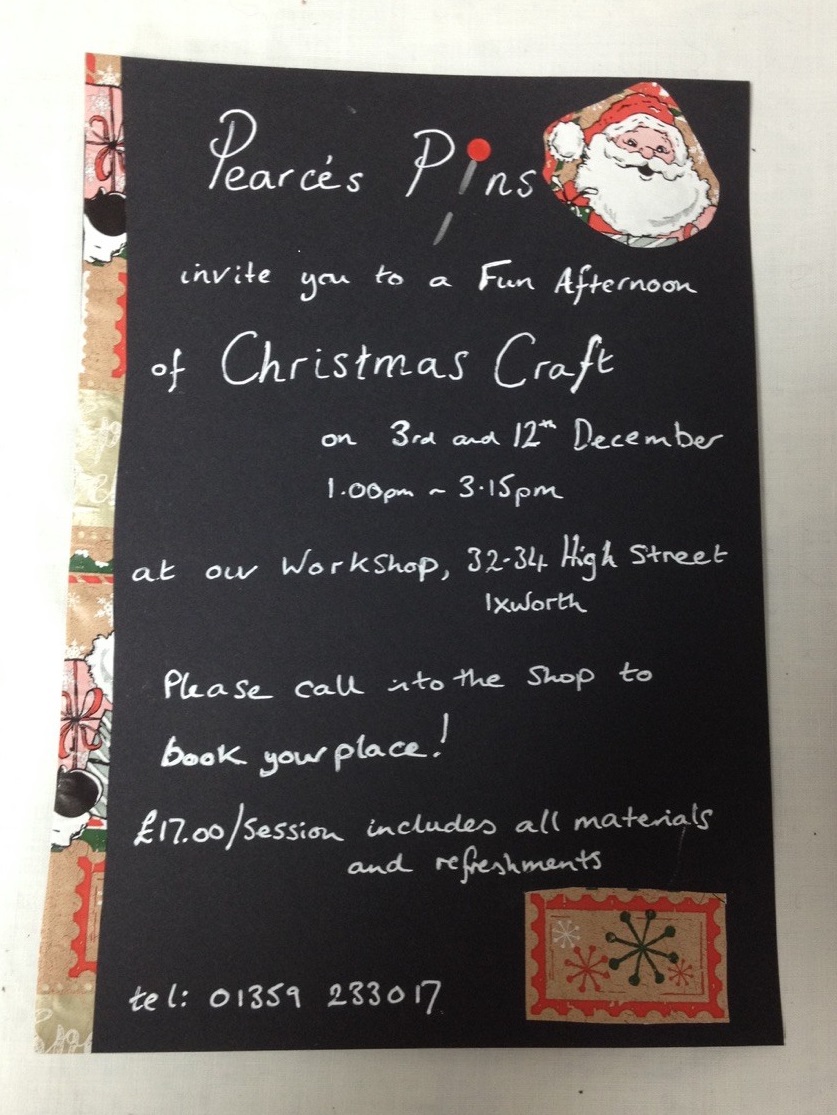 Pearce's Pins
invite you to a Fun Afternoon
of Christmas Craft
on 3rd and 12th December
1.00pm ~ 3.15pm
at our Workshop, 32-34 High Street
Ixworth
Please call into the shop to
book your place!
£17.00/Session includes all materials
and refreshments
tel: 01359 233017